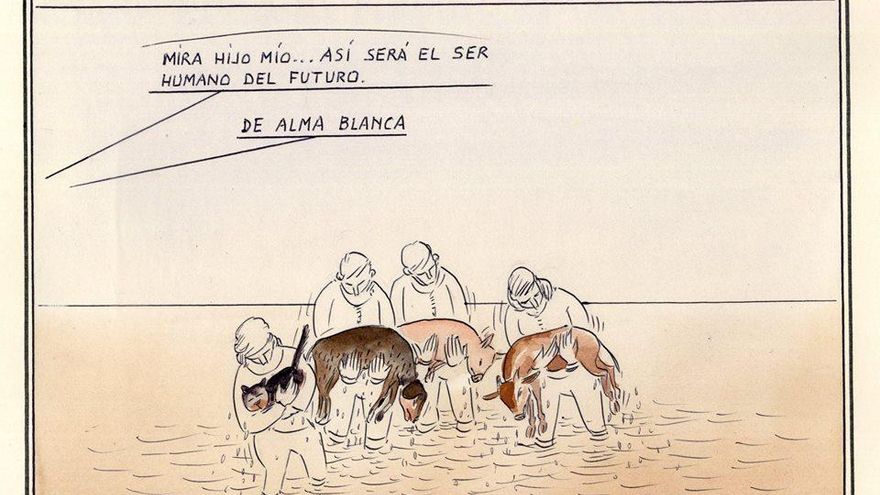 MIRA HIJO MÍO... ASÍ SERÁ EL SER
HUMANO DEL FUTURO.
DE ALMA BLANCA